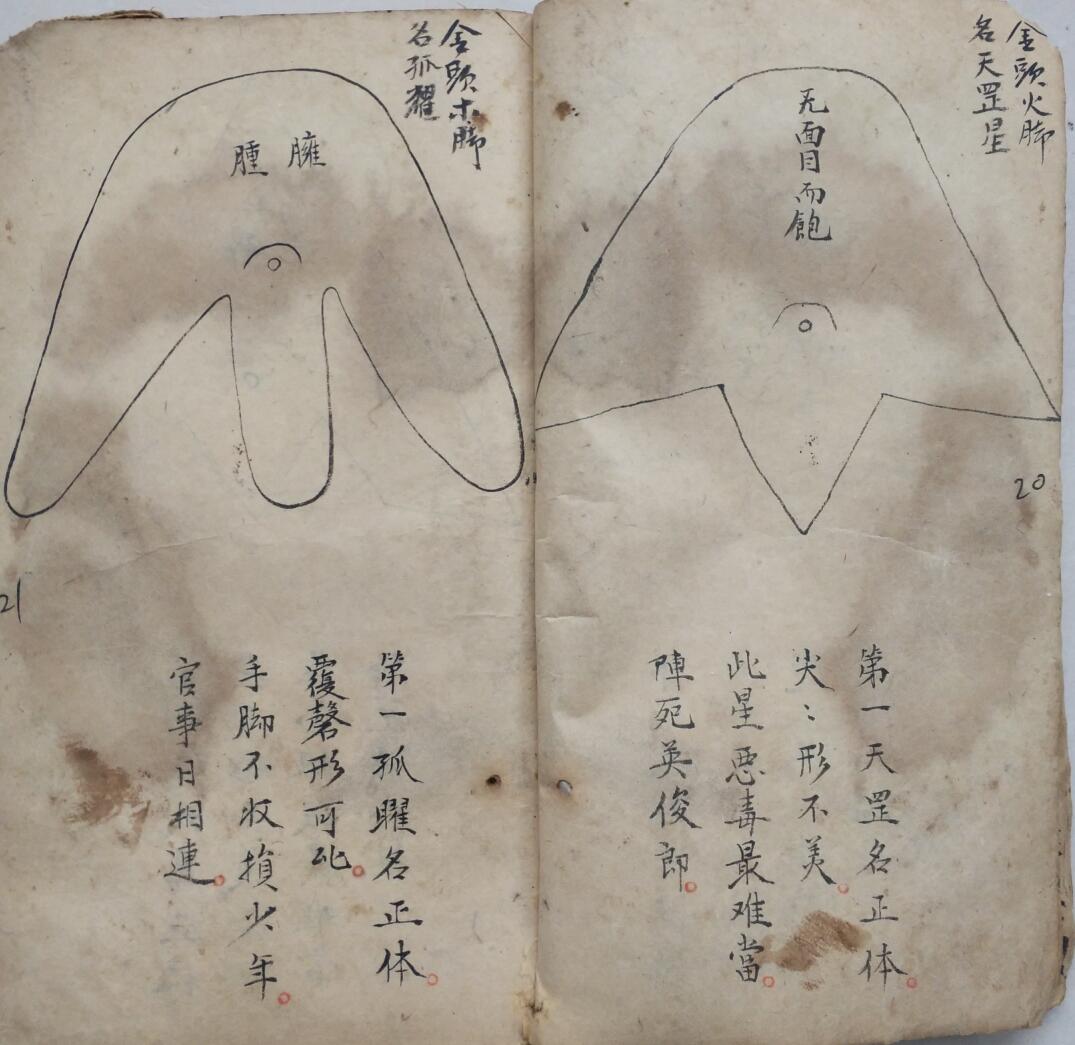 金頭火脚
名天罡星
无面目而飽
20
第一天罡名正体。
尖〻形不美。
此星恶毒最难當。
陣死英俊郎。
金頭木脚
名孤耀
臃腫
21
第一孤曜名正体。
覆磬形可比。
手脚不收損少年。
官事日相連。